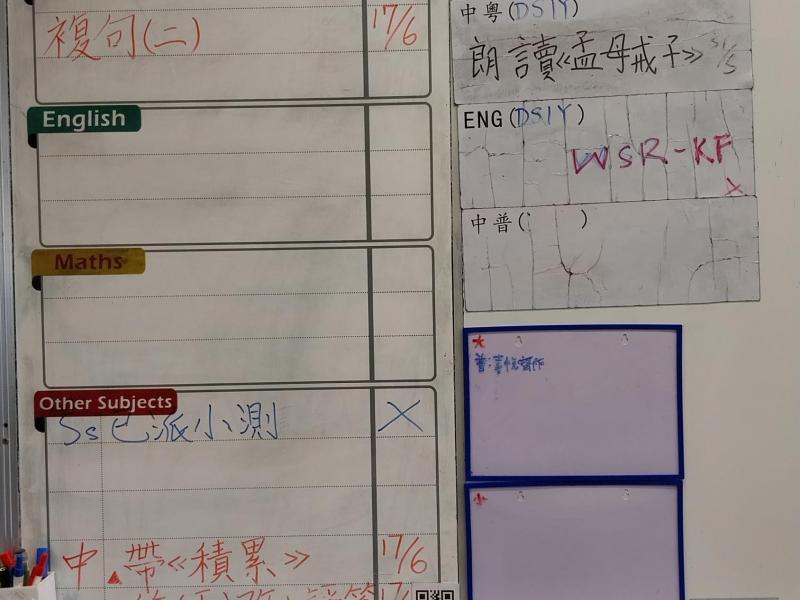 複句(二) 17/6
English
Maths
Other Subjects
Ss 已派小測 X
中 帶《積累》 17/6
中粵(DSIY)
朗讀《孟母戒子》 31/5
ENG(DSIY)
WSR-KF
X
中普( )